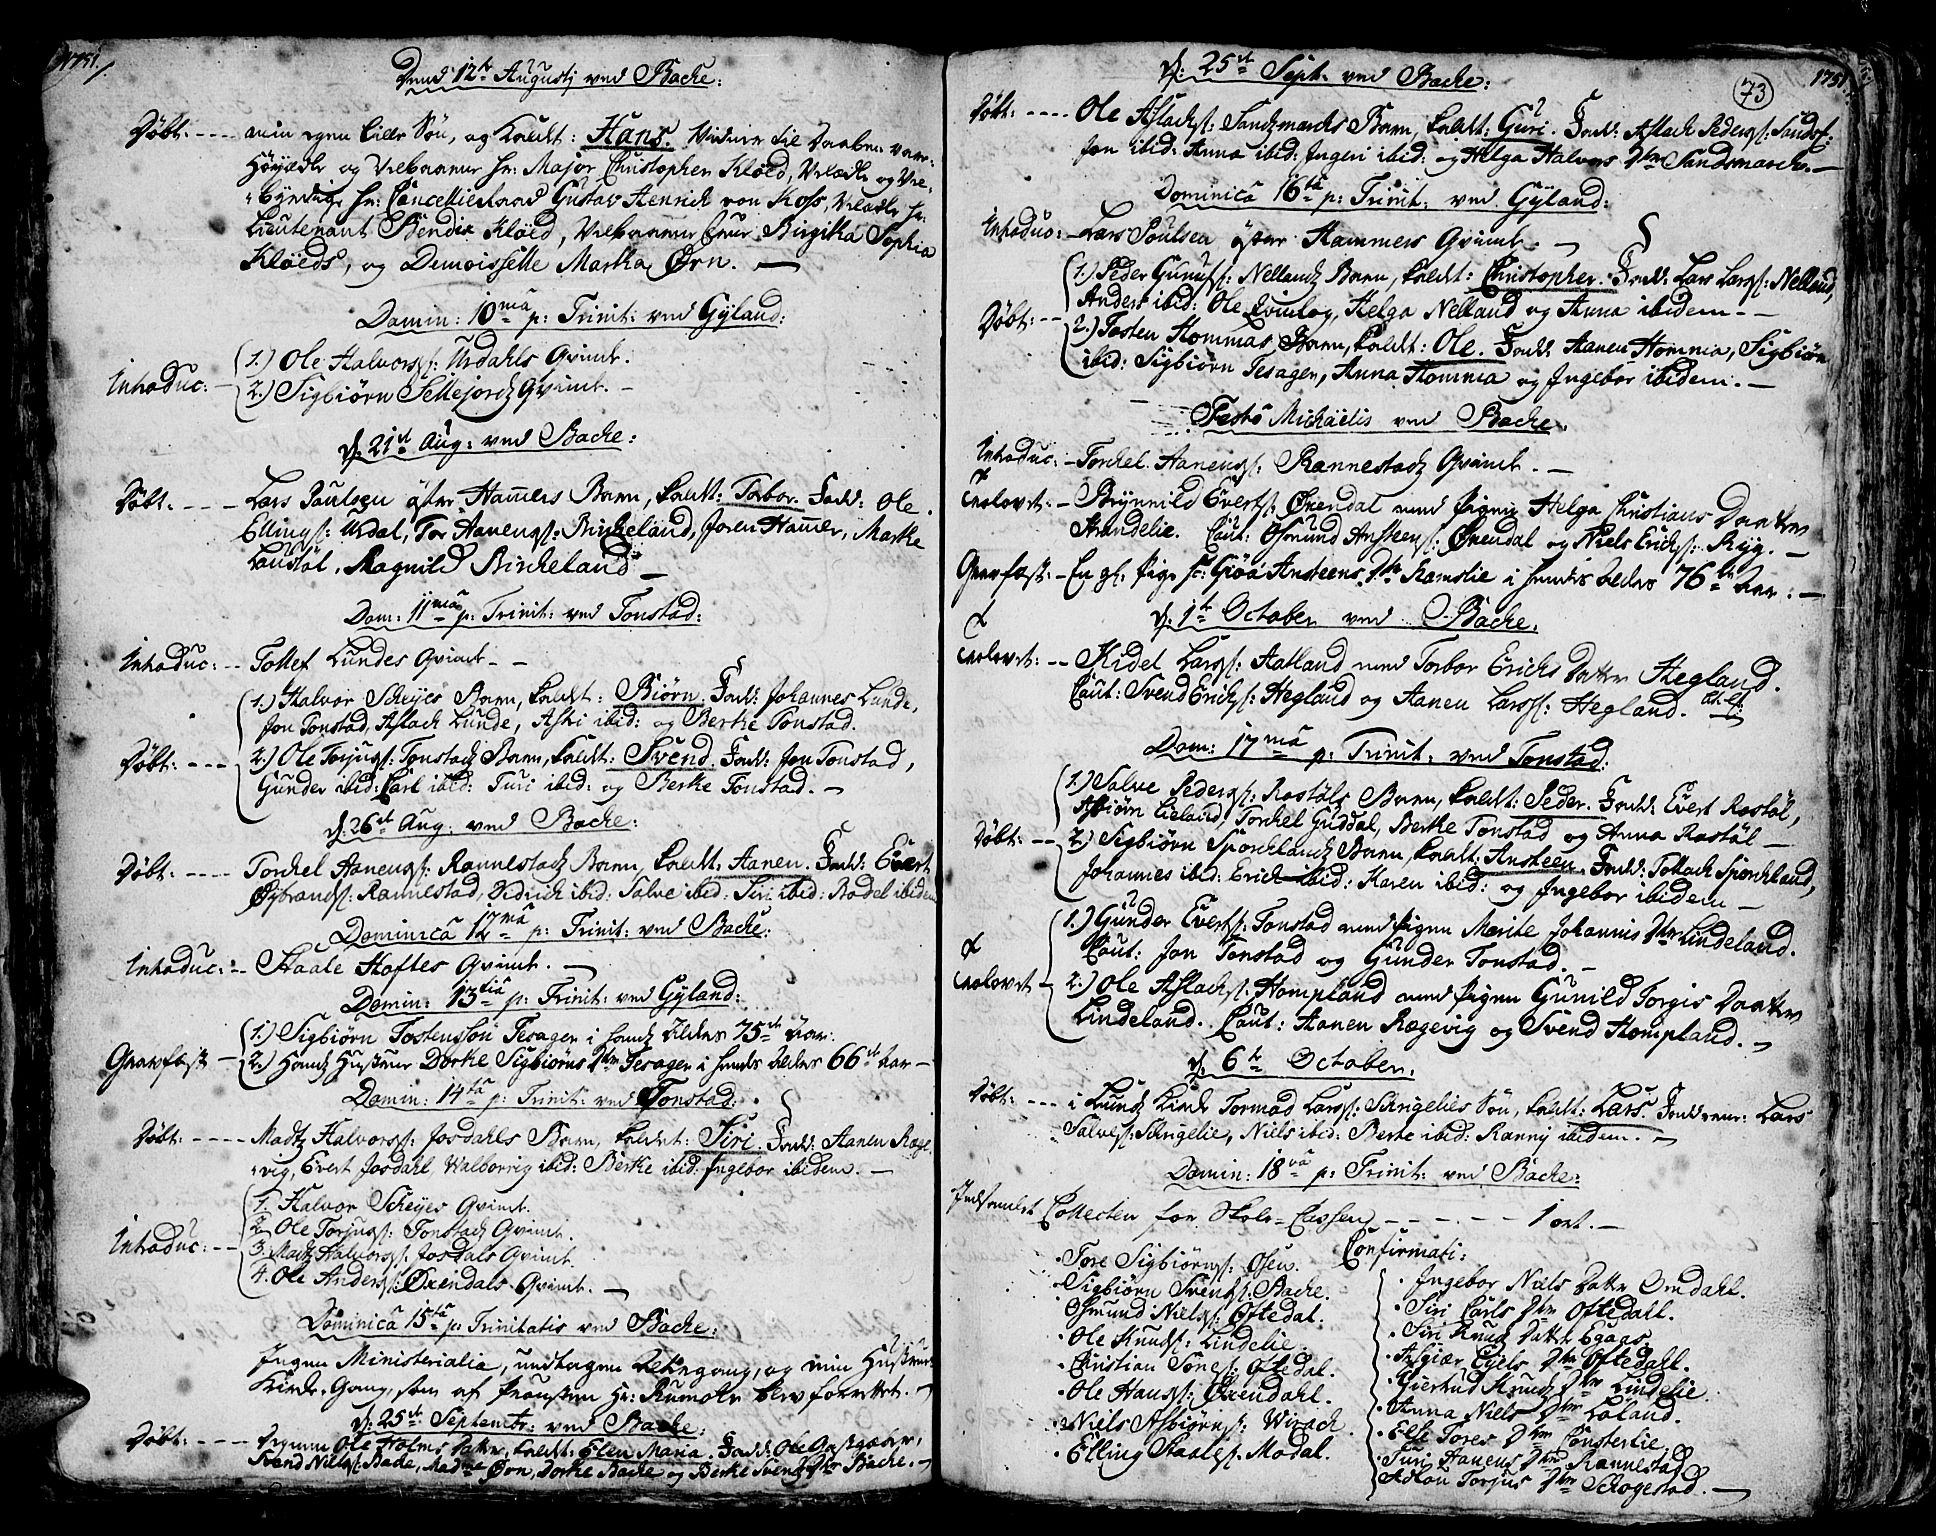 1751.
Dend 12te Augustj ved Backe:
Döbt: ---- min egen Lille Sön, og Kaldt: Hans. Vidner til Daaben vare:
Höyædle og Velbaarne Hr: Major Christopher Klöed, Velædle og Vel-
byrdige Hr: Cancellieraad Gustav Henrich von Koss, Velædle Hr:
Lieutenant Bendix Klöed, Velbaarne Frue Birgitha Sophia
Klöeds, og Demoisselle Martha Örn. —
Domin: 10ma p: Trinit: ved Gyland:
Introduc: - 1.) Ole Halvorss: Urdahls Qvinde.
2.) Sigbiörn Sellejords Qvinde. -
d: 21st Aug: ved Backe:
Döbt: ---- Lars Poulsen öster Hamers Barn, kaldt: Torbor. Fadd: Ole
Ellings: Urdal, Tor Aanens: Birkeland, Joren Hamer, Marthe
Laustöl, Ragnild Birkeland —
Dom: 11ma p: Trinit: ved Tonstad:
Introduc: -- Tollef Lundes Qvinde --
1.) Halvor Scheyes Barn, kaldt: Biörn. Fadd: Johannes Lunde,
Jon Tonstad, Aslach Lunde, Astri ibid: og Berthe Tonstad.
Döbt: --- 2.) Ole Torjus: Tonstads Barn, kaldt: Svend. Fadd: Jon Tonstad,
Gunder ibid: Carl ibid: Turi ibid: og Berthe Tonstad. —
d: 26st Aug: ved Backe:
Döbt: ---- Torkel Aanens: Rannestads Barn, kaldt: Aanen. Fadd: Evert
Osbrands: Rannestad, Didrich ibid: Salve ibid: Siri ibid: Bodel ibidem
Dominicâ 12ma p: Trinit: ved Backe:
Introduc: -- Staale Haftes Qvinde. —
Domin: 13tia p: Trinit: ved Gyland:
1.) Sigbiörn Tostenssön Tesager i hands Alders 75de Aar:
Gravfæst - 2.) Hands Hustrue Dorthe Sigbiörns Dtr Tesager i hendes Alders 66de Aar —
Domin: 14ta p: Trinit: ved Tonstad:
Döbt: ---- Madtz Halvors: Josdahls Barn, kaldet: Siri. Fadd: Aanen Ræge-
vig, Evert Josdahl, Walborrig ibid: Berthe ibid: Ingebor ibidem. —
1. Halvor Scheyes Qvinde.
2. Ole Torjus: Tonstads Qvinde.
Introduc: -- 3. Madtz Halvors: Josdals Qvinde
4. Ole Anders: Öxendals Qvinde. —
Dominicâ 15ta p: Trinitatis ved Backe:
Ingen Ministerialia, undtagen Kirkegang, og min Hustrues
Kirke-Gang, som af Provsten Hr: blev forrettet. —
d: 25st Septembr: ved Backe:
Döbt: ---- Ole Holms Datter, kaldt: Elen Maria. Fadd: Ole Gastgæber,
Svend Niels: Backe, Madme Örn, Dorthe Backe og Berthe Svends Dtr Backe. —
d: 25st Sept: ved Backe:
73
1751
Döbt: ---- Ole Aslachs: Sandsmarchs Barn, kaldt: Guri. Fadd: Aslach Peders: Sandsm:
Jon ibid: Anna ibid: Ingeri ibid: og Helga Halvors Dtr Sandsmarch. —
Dominicâ 16ta p: Trinit: ved Gyland:
Introduc: - Lars Poulsen öster Hammers Qvinde. —
1.) Peder Gunus: Nellands Barn, kaldt: Christopher. Fadd: Lars Lars: Nelland,
Döbt: -- Anders ibid: Ole Qvinlog, Helga Nelland og Anna ibidem --
2.) Tosten Hommas Barn, kaldt: Ole. Fadd: Aanen Homma, Sigbiörn
ibid: Sigbiörn Tesager, Anna Homma og Ingebor ibidem. —
Festo Michäelis ved Backe.
Introduc: - Torkel Aanens: Rannestads Qvinde. —
Trolovet: - Brynnild Everts: Öxendal med Pigen Helga Christians Daatter
Strandelie. Caut: Osmund Ansteens: Öxendal og Niels Erichs: Ryg. —
Gravfæst: - En gl: Pige Giöa Ansteens Dtr Ramslie i hendes Alders 76de Aar: —
d: 1te October ved Backe:
Trolovet: -- Kidel Lars: Aatland med Torbor Erichs Datter Hegland.
Caut: Svend Erichs: Hegland og Aanen Lars: Hegland.
Dom: 17ma p: Trinit: ved Tonstad:
1.) Salve Peders: Rostöls Barn, kaldt: Peder. Fadd: Evert Rostöl,
Asbiörn Lieland, Torkel Guddal, Berthe Tonstad og Anna Rostöl —
Döbt: -- 2.) Sigbiörn Sporklands Barn, kaldt: Ansteen. Fadd: Tollach Sporkland,
Johannes ibid: Erich ibid: Karen ibid: og Ingebor ibidem —
1.) Gunder Everts: Tonstad med Pigen Merite Johannis Dtr Lindeland.
Caut: Jon Tonstad og Gunder Tonstad. —
Trolovet - 2.) Ole Aslachs: Hompland med Pigen Gunild Torgis Daatter
Lindeland. Caut: Aanen Rægevig og Svend Hompland. —
d: 6te October.
Döbt: --- i Lunds Kirke Tormod Lars: Skrigelies Sön, kaldt: Lars. Fadderne: Lars
Salves: Skrigelie, Niels ibid: Berthe ibid: Ranny ibidem. —
Domin: 18va p: Trinit: ved Backe:
Indsamlet Collecten for Skole-Cassen ------ 1 ort. —
Confirmati:
Tore Sigbiörns: Osen.
Sigbiörn Svends: Backe.
Osmund Niels: Oftedal.
Ole Knuds: Lindelie.
Christian Tönes: Oftedal.
Ole Hans: Öxendahl.
Niels Asbiörns: Wirach.
Elling Staales: Modal.
Ingebor Niels Datter Omdahl.
Siri Carls Dtr Oftedahl.
Siri Knud Datter Egaas
Asgiær Eyels Dtr Oftedahl.
Giertrud Knuds Dtr Lindelie
Anna Niels Dtr Löland.
Else Tores Dtr Consterlie
Turi Aanens Dtr Rannestad
Adlou Torjus Dtr Schogestad. —